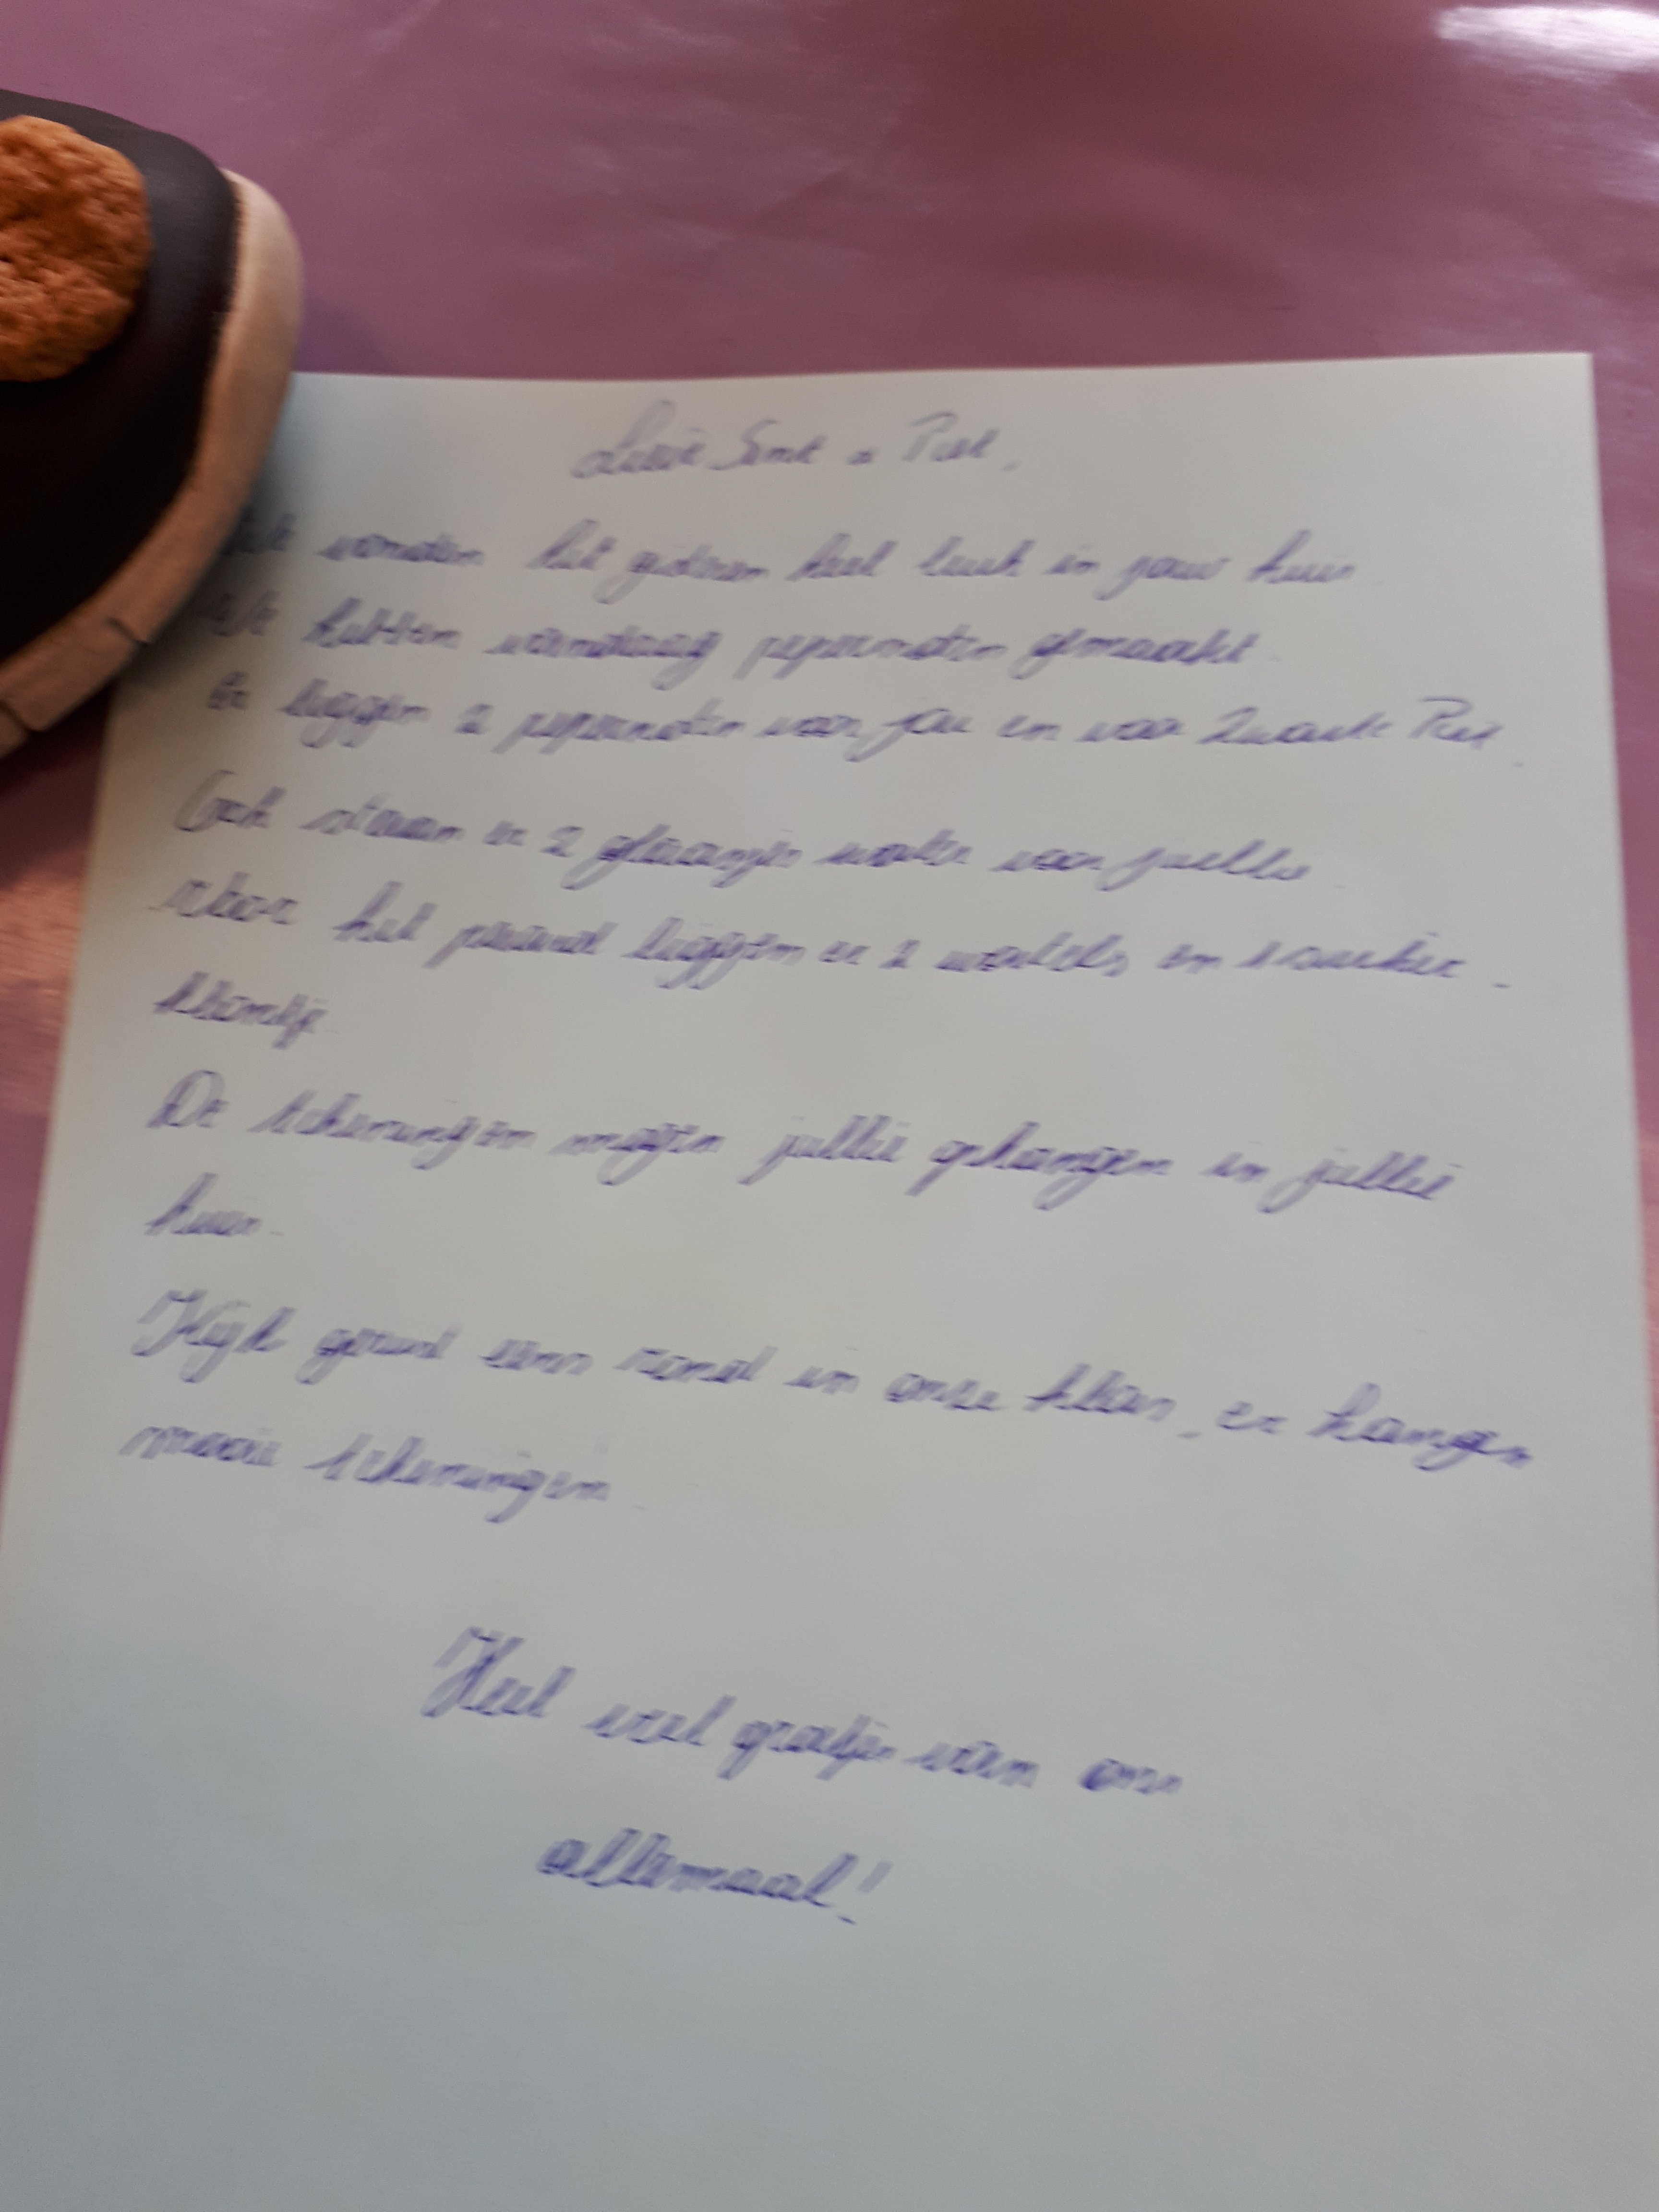 Lieve Sint en Piet,
We vonden het gisteren heel leuk in jouw huis
We hebben vandaag pepernoten gemaakt
Er liggen 2 pepernoten voor jou en voor Zwarte Piet.
Ook staan er 2 glaasjes water voor jullie
Voor het paard liggen er 2 wortels en 1 suiker-
klontje
De tekeningen mogen jullie ophangen in jullie
huis.
Kijk gerust eens rond in onze klas, er hangen
mooie tekeningen
Heel veel groetjes van ons
allemaal!